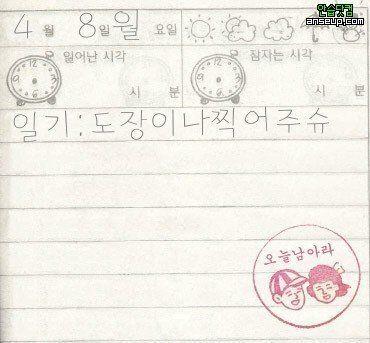 안습닷컴
anseup.com
4월 8일 월요일
일어난 시각 잠자는 시각
시 분 시 분
일기:도장이나찍어주슈
오늘남아라